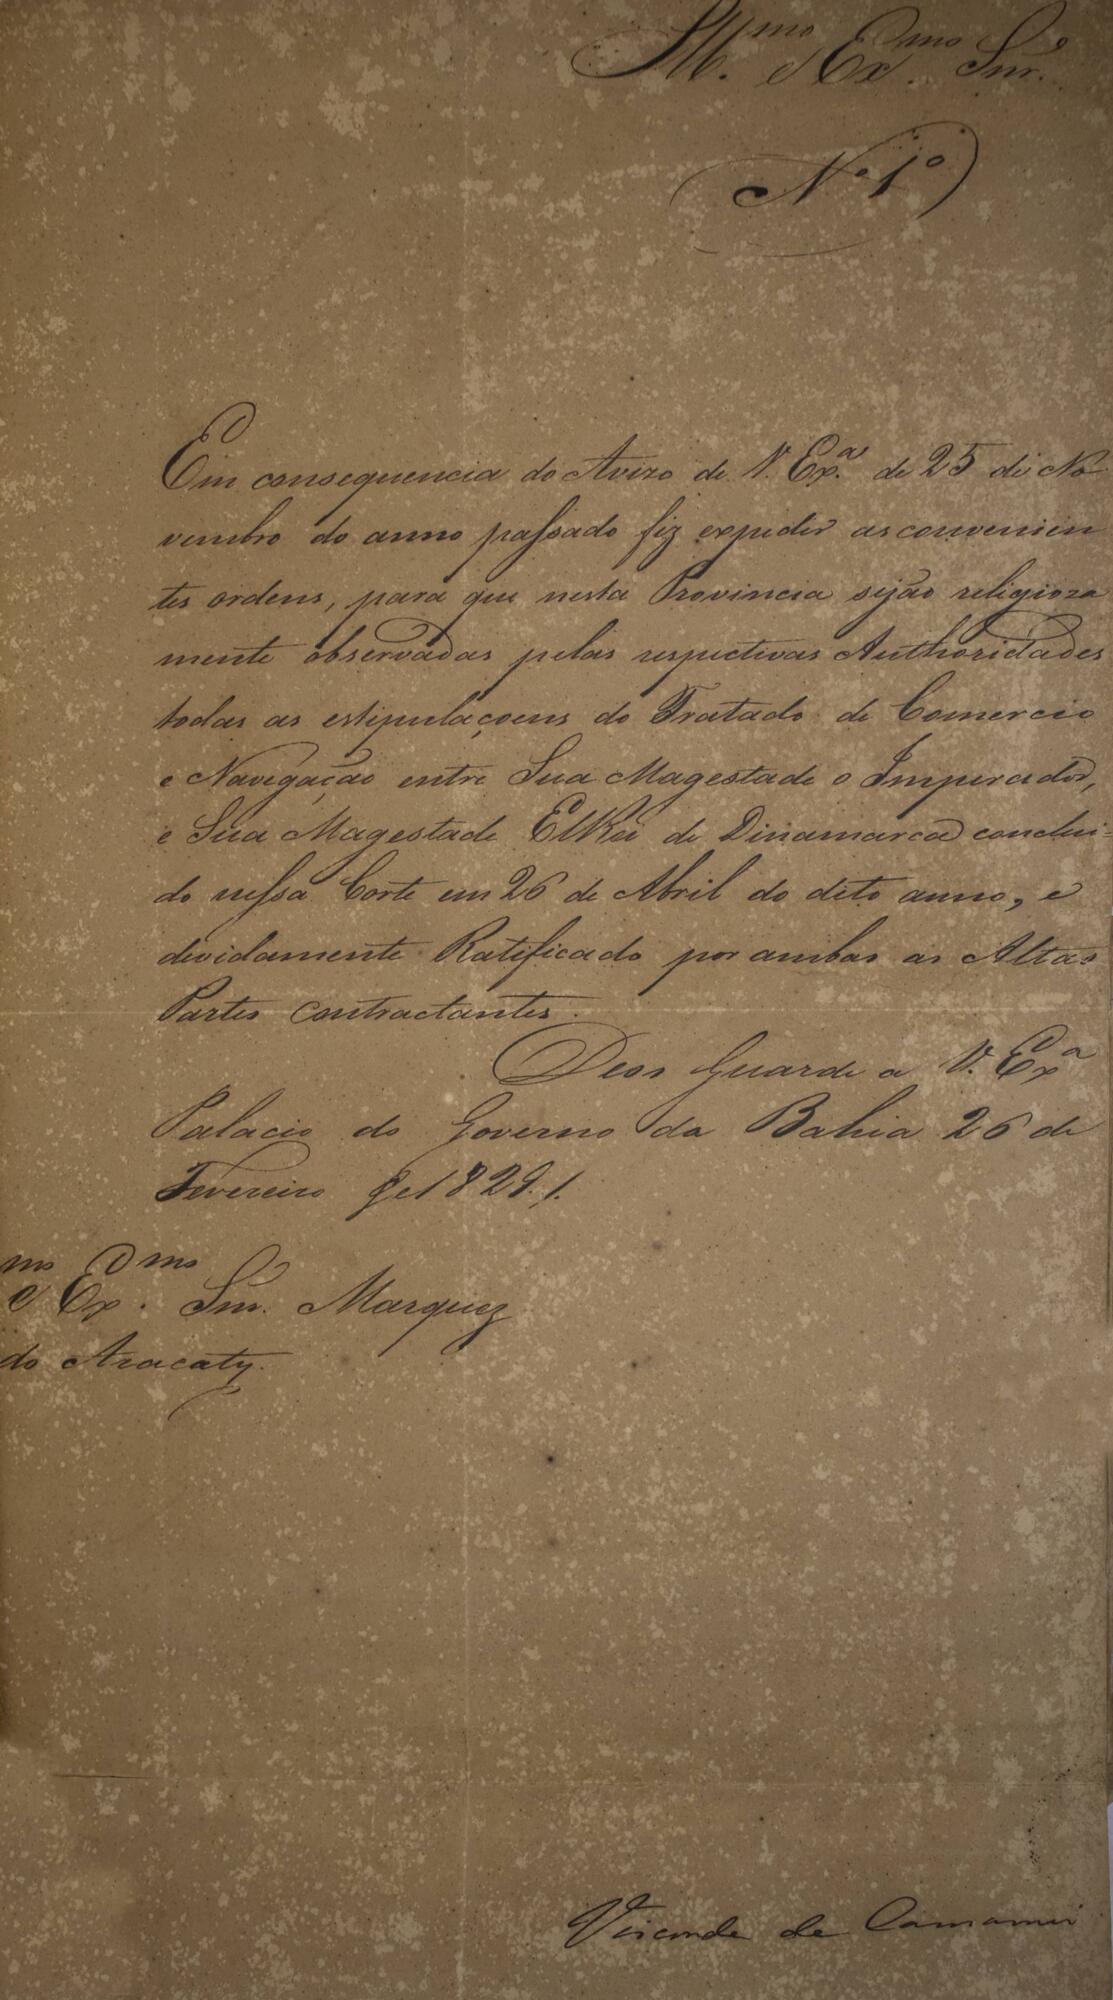 Ill.mo e Ex.mo Snr.
N.º 1º
Em consequencia do Avizo de V. Ex.ª de 25 de No
vembro do anno passado fiz expedir as convenien
tes ordens, para que nesta Provincia sejão religioza
mente observadas pelas respectivas Authoridades
todas as estipulaçoens do Tratado de Comercio
e Navegação entre Sua Magestade o Imperador,
e Sua Magestade ElRei de Dinamarca conclui-
do nessa Corte em 26 de Abril do dito anno, e
devidamente Ratificado por ambas as Altas
Partes contractantes.
Deos Guarde a V. Ex.ª
Palacio do Governo da Bahia 26 de
Fevereiro de 1829./.
mo e Ex.mo Snr. Marquez
do Aracaty.
Visconde de Camamú